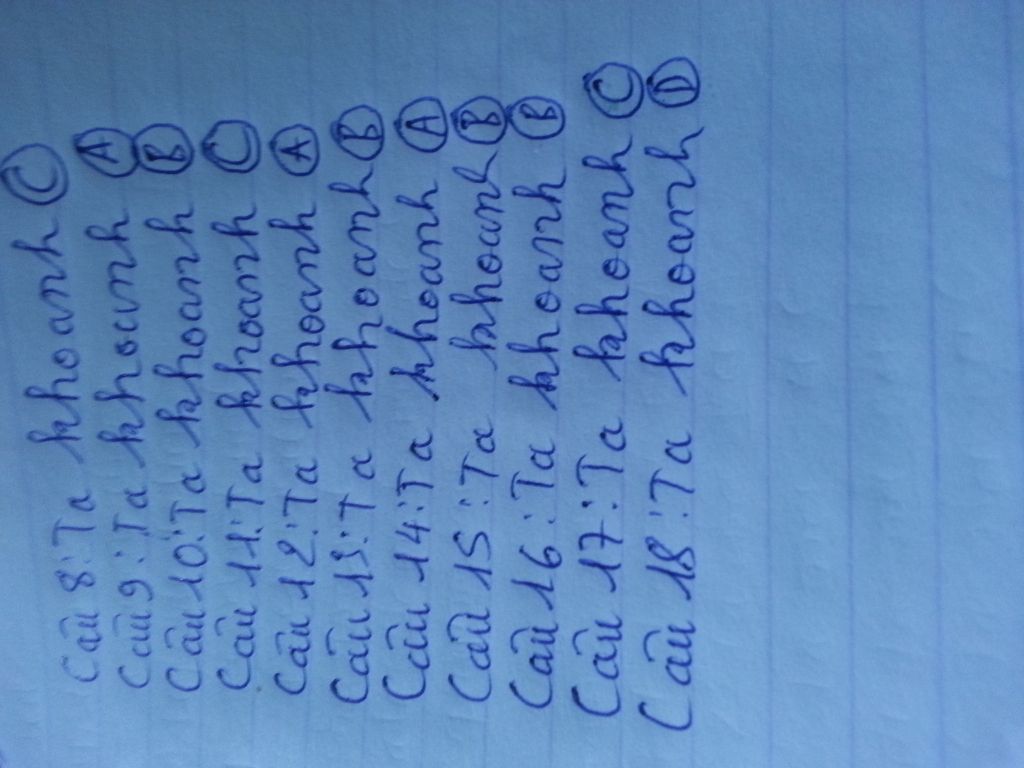 Câu 8: Ta khoanh C
Câu 9: Ta khoanh A
Câu 10: Ta khoanh B
Câu 11: Ta khoanh C
Câu 12: Ta khoanh A
Câu 13: Ta khoanh B
Câu 14: Ta khoanh A
Câu 15: Ta khoanh B
Câu 16: Ta khoanh B
Câu 17: Ta khoanh C
Câu 18: Ta khoanh D